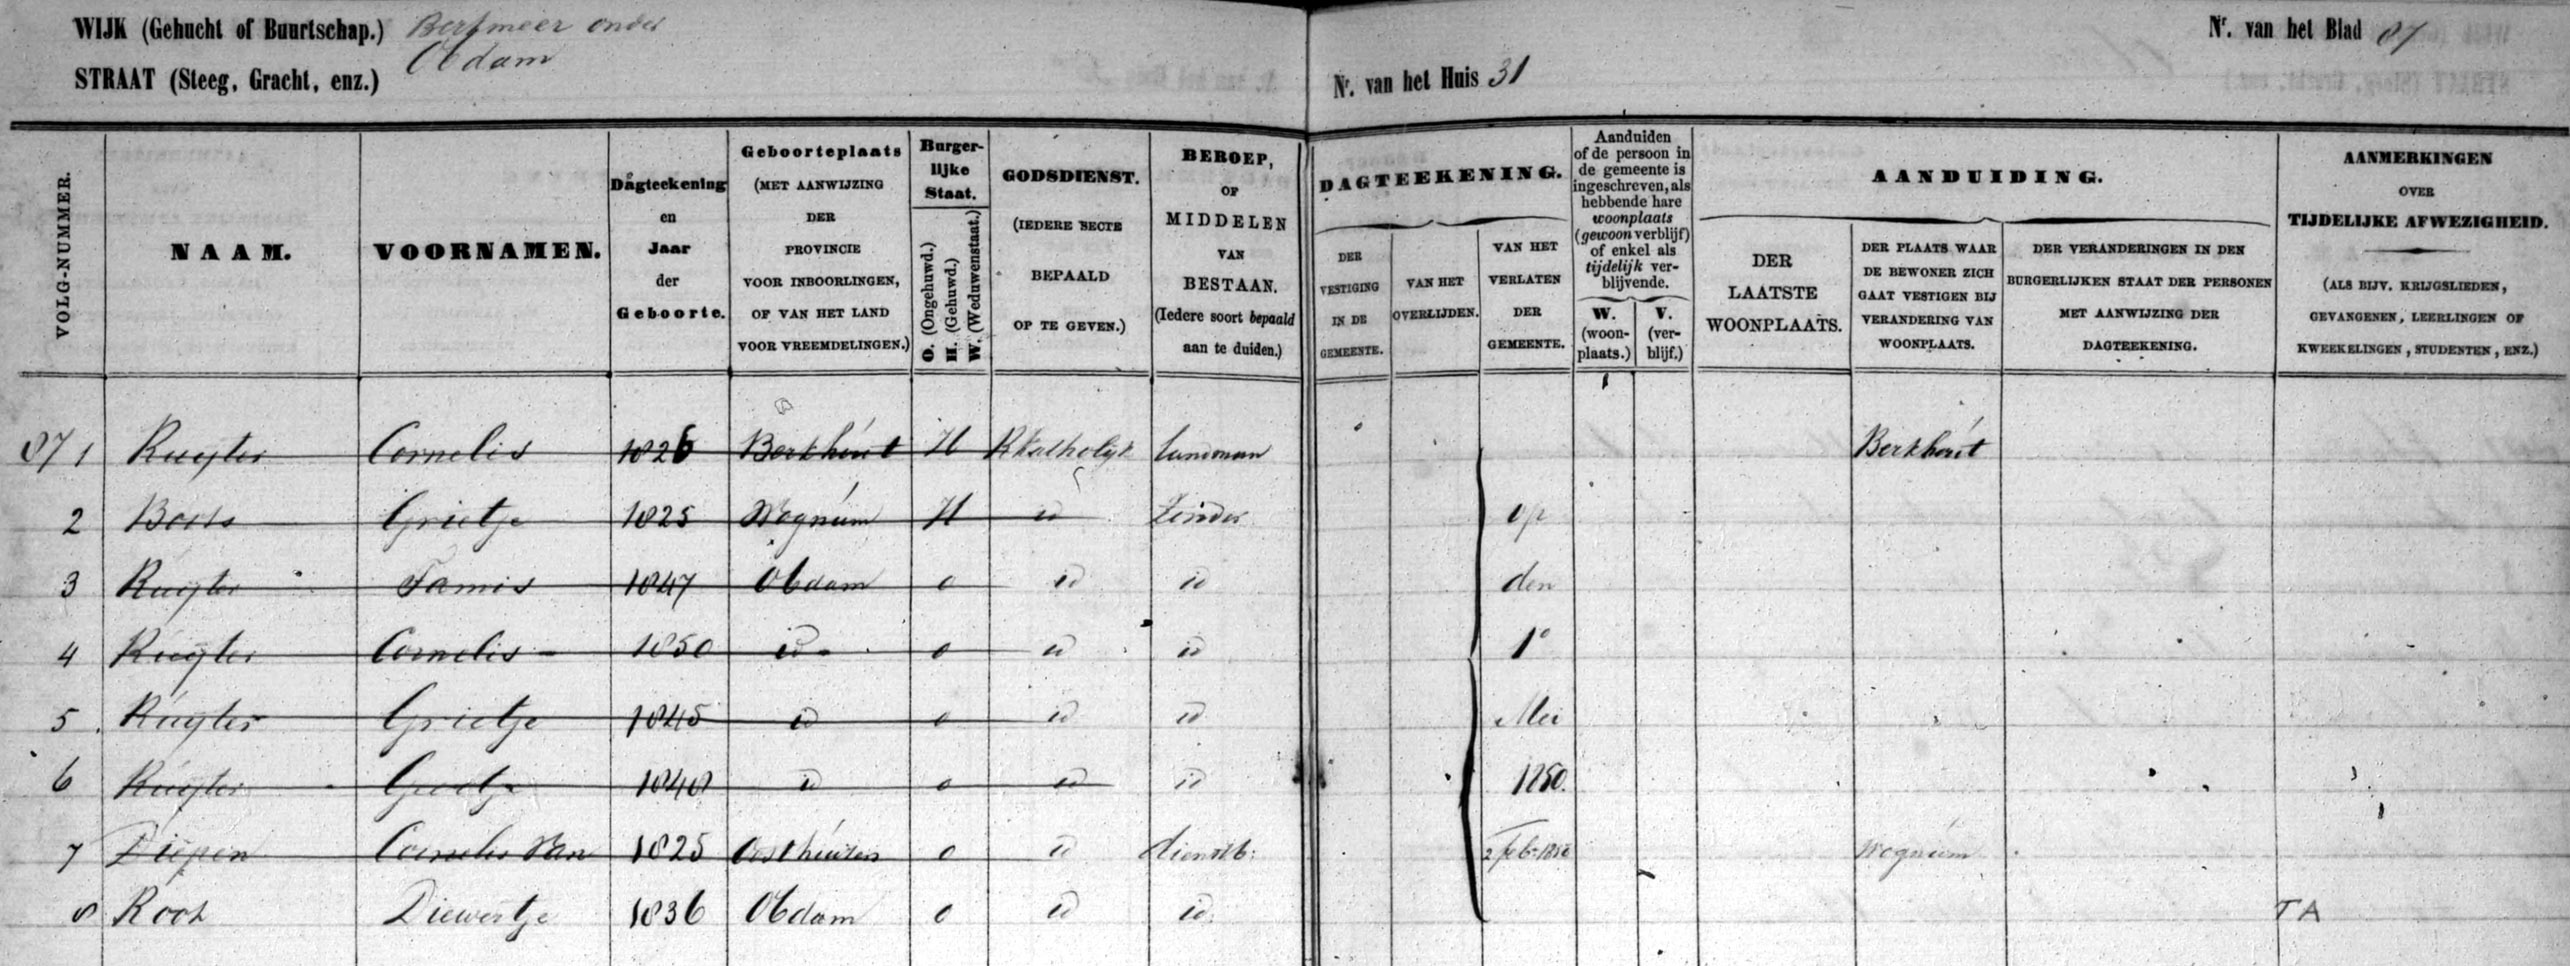 WIJK (Gehucht of Buurtschap.) Berkmeer onder
Obdam
STRAAT (Steeg, Gracht, enz.)
Nr. van het Huis 31
Nr. van het Blad 87
VOLG-NUMMER.
NAAM.
VOORNAMEN.
Dagteekening
en
Jaar
der
Geboorte.
Geboorteplaats
(MET AANWIJZING
DER
PROVINCIE
VOOR INBOORLINGEN,
OF VAN HET LAND
VOOR VREEMDELINGEN.)
Burger-
lijke
Staat.
O. (Ongehuwd.)
H. (Gehuwd.)
W. (Weduwenstaat.)
GODSDIENST.
(IEDERE SECTE
BEPAALD
OP TE GEVEN.)
BEROEP,
OF
MIDDELEN
VAN
BESTAAN.
(Iedere soort bepaald
aan te duiden.)
DAGTEEKENING.
DER
VESTIGING
IN DE
GEMEENTE.
VAN HET
OVERLIJDEN.
VAN HET
VERLATEN
DER
GEMEENTE.
Aanduiden
of de persoon in
de gemeente is
ingeschreven, als
hebbende hare
woonplaats
(gewoon verblijf)
of enkel als
tijdelijk ver-
blijvende.
W.
(woon-
plaats.)
V.
(ver-
blijf.)
AANDUIDING.
DER
LAATSTE
WOONPLAATS.
DER PLAATS WAAR
DE BEWONER ZICH
GAAT VESTIGEN BIJ
VERANDERING VAN
WOONPLAATS.
DER VERANDERINGEN IN DEN
BURGERLIJKEN STAAT DER PERSONEN
MET AANWIJZING DER
DAGTEEKENING.
AANMERKINGEN
OVER
TIJDELIJKE AFWEZIGHEID.
(ALS BIJV. KRIJGSLIEDEN,
GEVANGENEN, LEERLINGEN OF
KWEEKELINGEN, STUDENTEN, ENZ.)
87 1 Ruyter Cornelis 1826 Berkhout H RKatholijk landman Berkhout
2 Boots Grietje 1825 Wognum H id Zonder op
3 Ruyter Famis 1847 Obdam o id id den
4 Ruyter Cornelis 1850 id o id id 1°
5 Ruyter Grietje 1845 id o id id Mei
6 Ruyter 1848 id o id id 1850.
7 Diepen Cornelis Van 1825 Oosthuizen o id dienstb: 2 Feb: 1850 Wognum
8 Kook Diewertje 1836 Obdam o id id. TA